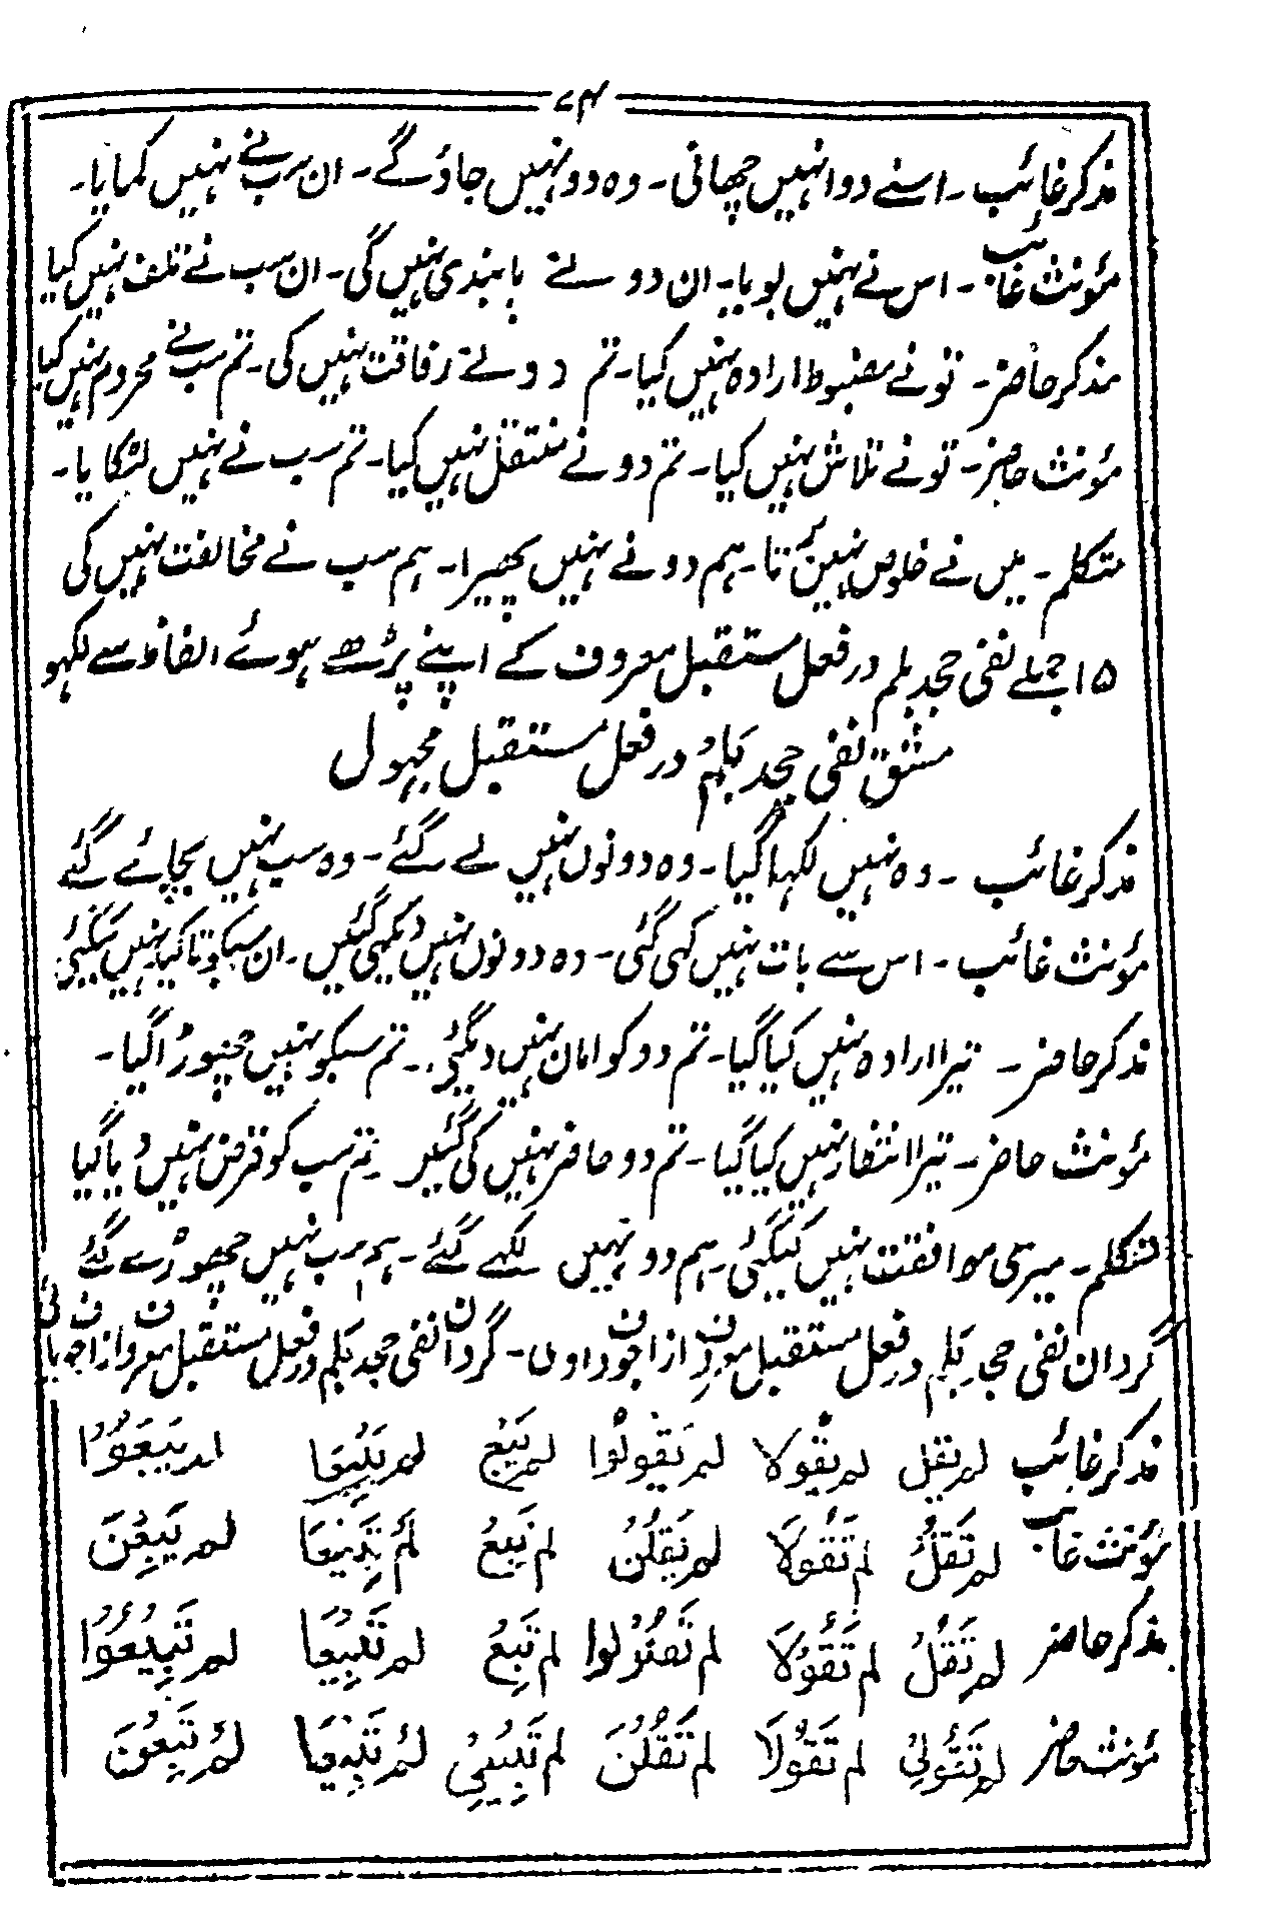 ۷۴
مذکر غائب ۔ اسنے دوا نہیں چھانی ۔ وہ دو نہیں جاؤ گے ۔ ان سب نے نہیں کمایا ۔
مؤنث غائب ۔ اس نے نہیں بویا ۔ ان دو نے پابندی نہیں گی ۔ ان سب نے تلف نہیں کیا
مذکر حاضر ۔ تو نے مضبوط ارادہ نہیں کیا ۔ تم دو نے رفاقت نہیں کی ۔ تم سب نے محروم نہیں کیا
مؤنث حاضر ۔ تو نے تلاش نہیں کیا ۔ تم دو نے منتقل نہیں کیا ۔ تم سب نے نہیں لٹکایا ۔
متکلم ۔ میں نے خلوص نہیں برتا ۔ ہم دو نے نہیں پھیرا ۔ ہم سب نے مخالفت نہیں کی
۱۵ جملے نفی جحد بلم در فعل مستقبل معروف کے اپنے پڑھے ہوئے الفاظ سے لکھو
مشق نفی جحد بلم در فعل مستقبل مجہول
مذکر غائب ۔ وہ نہیں لکہا گیا ۔ وہ دونوں نہیں لے گئے ۔ وہ سب نہیں بچائے گئے
مؤنث غائب ۔ اس سے بات نہیں کی گئی ۔ وہ دونوں نہیں دیکھی گئیں ۔ ان سبکو تاکید نہیں کیگئی
مذکر حاضر ۔ تیرا ارادہ نہیں کیا گیا ۔ تم دو کو امان نہیں دیگئی ۔ تم سبکو نہیں جھنجوڑا گیا ۔
مؤنث حاضر ۔ تیرا انتظار نہیں کیا گیا ۔ تم دو حاضر نہیں کی گئیں ۔ تم سب کو قرض نہیں دیا گیا
متکلم ۔ میری موافقت نہیں کیگئی ۔ ہم دو نہیں لکہے گئے ۔ ہم سب نہیں چھوڑے گئے
گردان نفی جحد بلم در فعل مستقبل معروف از اجوف واوی ۔ گردان نفی جحد بلم در فعل مستقبل معروف از اجوف یائی
مذکر غائب لم یقل لم یقولا لم یقولوا لم یبع لم یبیعا لم یبیعوا
مؤنث غائب لم تقل لم تقولا لم یقلن لم تبع لم تبیعا لم یبعن
مذکر حاضر لم تقل لم تقولا لم تقولوا لم تبع لم تبیعا لم تبیعوا
مؤنث حاضر لم تقولی لم تقولا لم تقلن لم تبیعی لم تبیعا لم تبعن